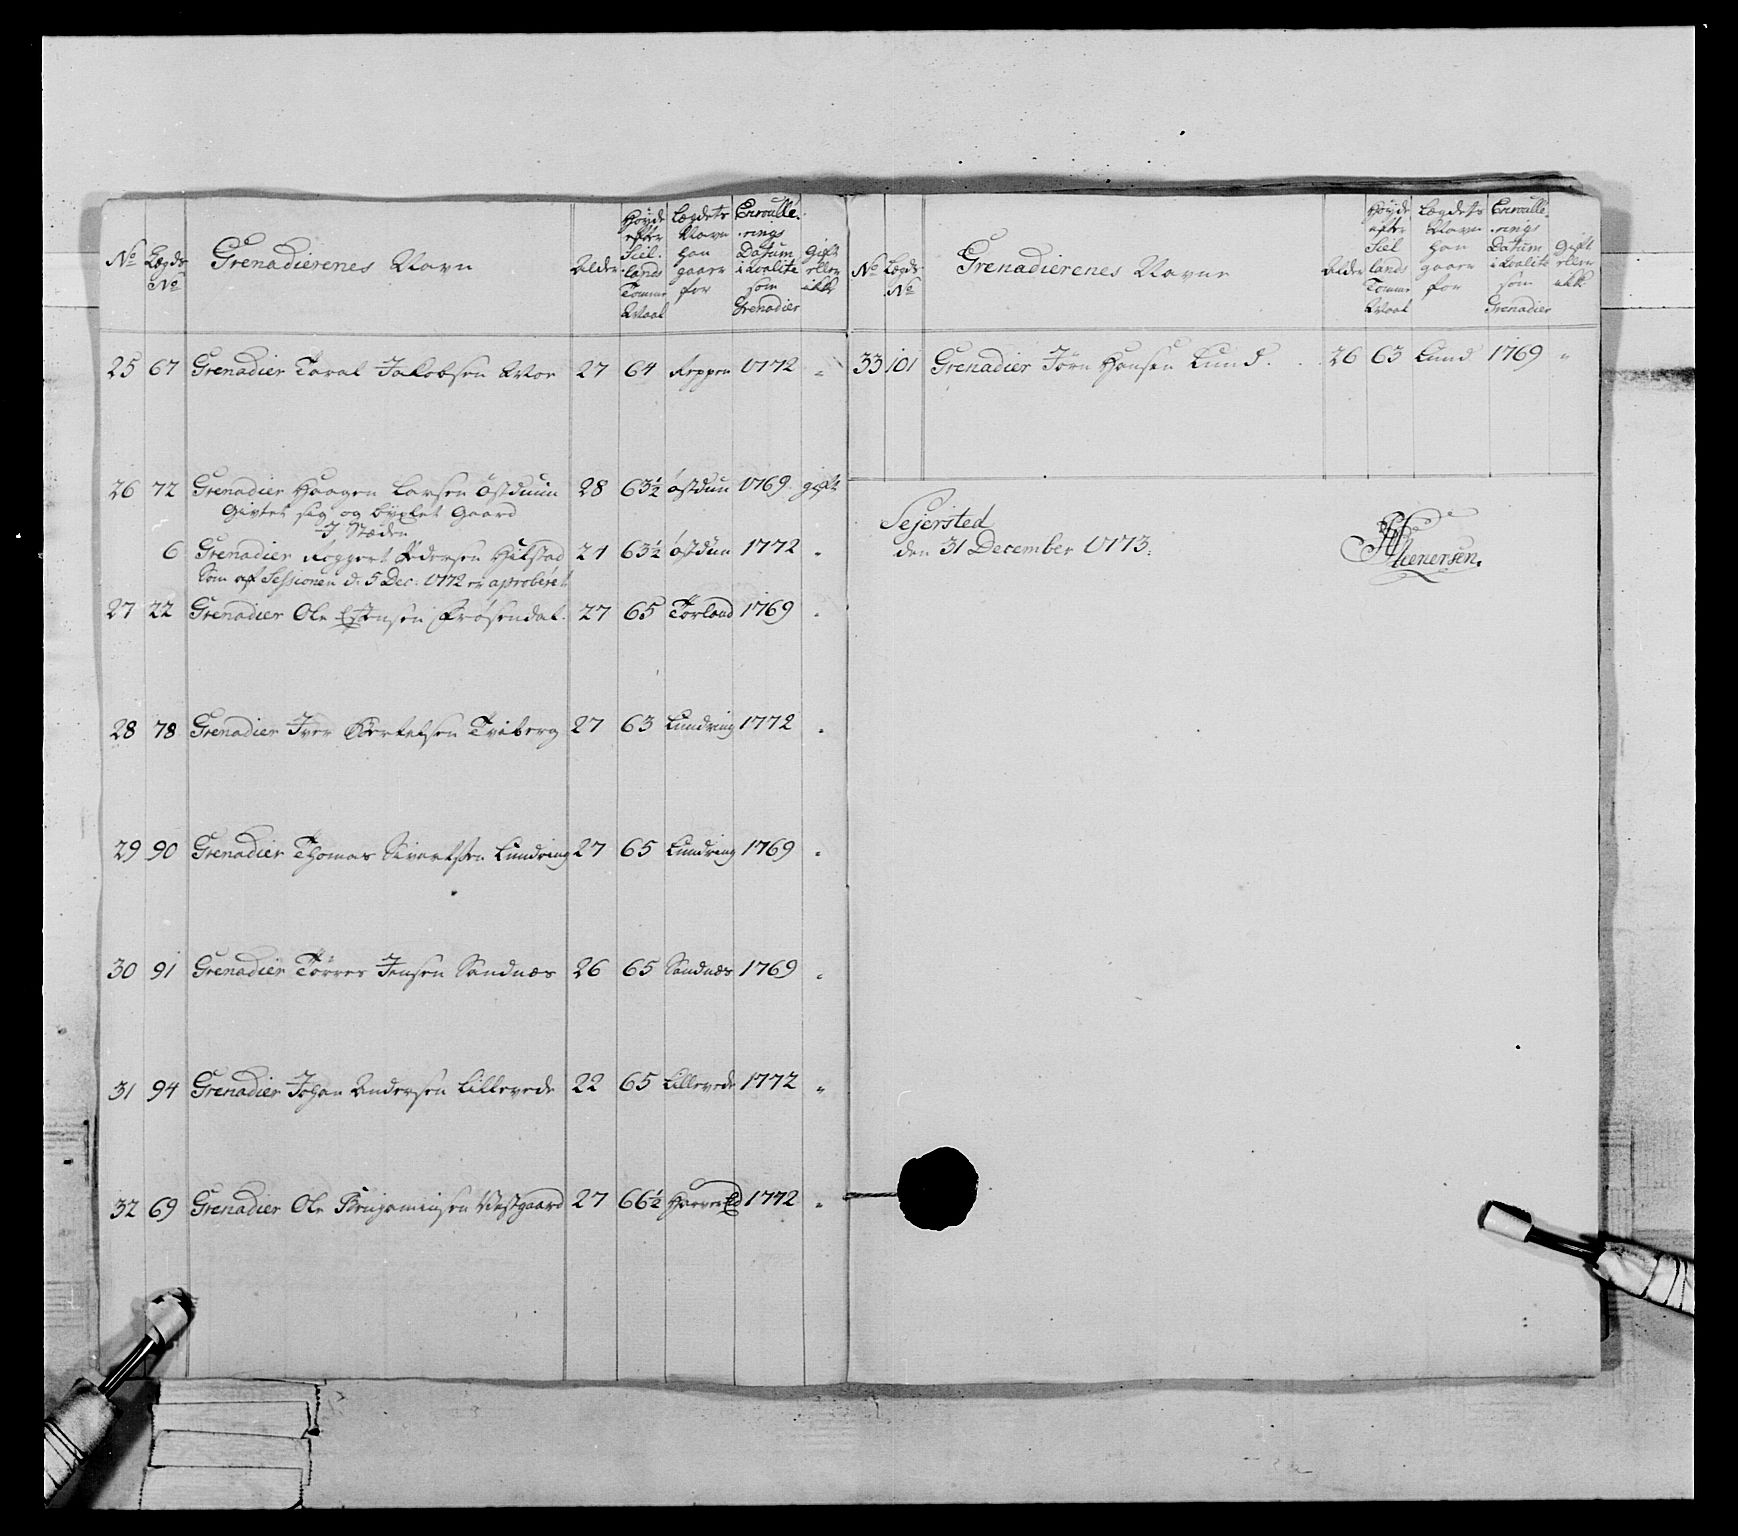 No Lægds No Grenadierenes Navn Alder Høyde efter Siel. lands Tomme Maal Lægdets Navn han gaaer for Enroulle. rings Datum i Qvalite som Grenadier Gift eller ikke
25 67 Grenadier Taral Jakobsen Moe 27 64 Røppen 1772 "
26 72 Grenadier Haagen Larsen Østduun 28 63½ Østdun 1769 gift
Givtet sig og byxlet Gaard
I Stæden
6 Grenadier Roggert Pedersen Hilstad 21 63½ Østdun 1772 "
Som af Sessionen d. 5 Dec: 1772 er aproberet
27 22 Grenadier Ole Estensen Frøsendal 27 65 Torland 1769 "
28 78 Grenadier Iver Bertelsen Tviberg 27 63 Lundring 1772 "
29 90 Grenadier Thomas Sivertsen Lundring 27 65 Lundring 1769 "
30 91 Grenadier Tørres Jensen Sandnæs 26 65 Sandnæs 1769 "
31 94 Grenadier Johan Andersen Lillevede 22 65 Lillevede 1772 "
32 69 Grenadier Ole Benjaminsen Vestgaard 27 66½ 1772 "
No Lægds No Grenadierenes Navne Alder Høyde efter Siel lands Tomme Maal Lægdets Navn han gaaer for Enroulle. rings Datum i Qvalite som Grenadier Gift eller ikke
33 101 Grenadier Jørn Hansen Lund. 26 63 Lund 1769 "
Sejersted
den 31 December 1773.